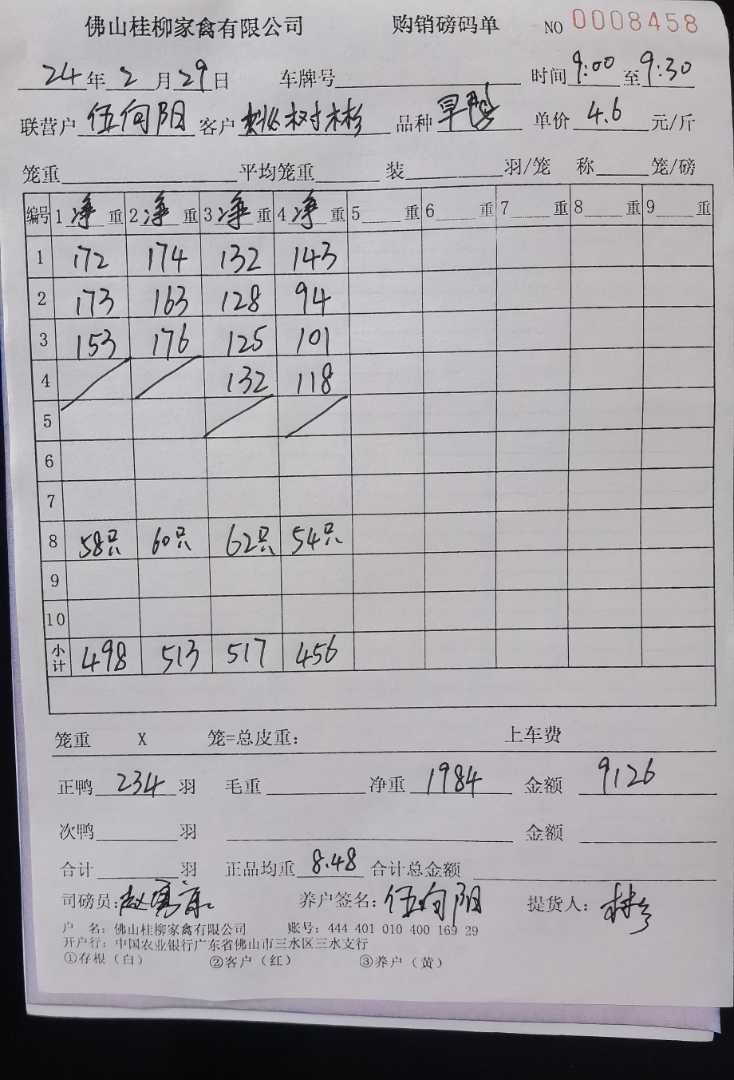 佛山桂柳家禽有限公司 购销磅码单 NO 0008458
24年2月29日 车牌号 时间9:00至9:30
联营户 伍向阳 客户 树彬 品种 旱鸭 单价 4.6 元/斤
笼重 平均笼重 装 羽/笼 称 笼/磅
编号 1净重 2净重 3净重 4净重 5重 6重 7重 8重 9重
1 172 174 132 143
2 173 163 128 94
3 153 176 125 101
4 132 118
5
6
7
8 58只 60只 62只 54只
9
10
小计 498 513 517 456
笼重 X 笼=总皮重: 上车费
正鸭 234 羽 毛重 净重 1984 金额 9126
次鸭 羽 金额
合计 羽 正品均重 8.48 合计总金额
司磅员: 养户签名: 伍向阳 提货人:
户 名: 佛山桂柳家禽有限公司 账号: 444 401 010 400 169 29
开户行: 中国农业银行广东省佛山市三水区三水支行
①存根（白） ②客户（红） ③养户（黄）